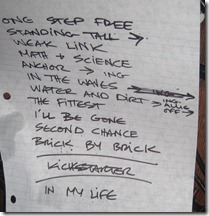 ONE STEP FREE
STANDING TALL →
WEAK LINK
MATH + SCIENCE
ANCHOR → ING
IN THE WAVES →
WATER AND DIRT →
THE FITTEST
I'LL BE GONE
SECOND CHANCE
BRICK BY BRICK
KICKSTARTER
IN MY LIFE